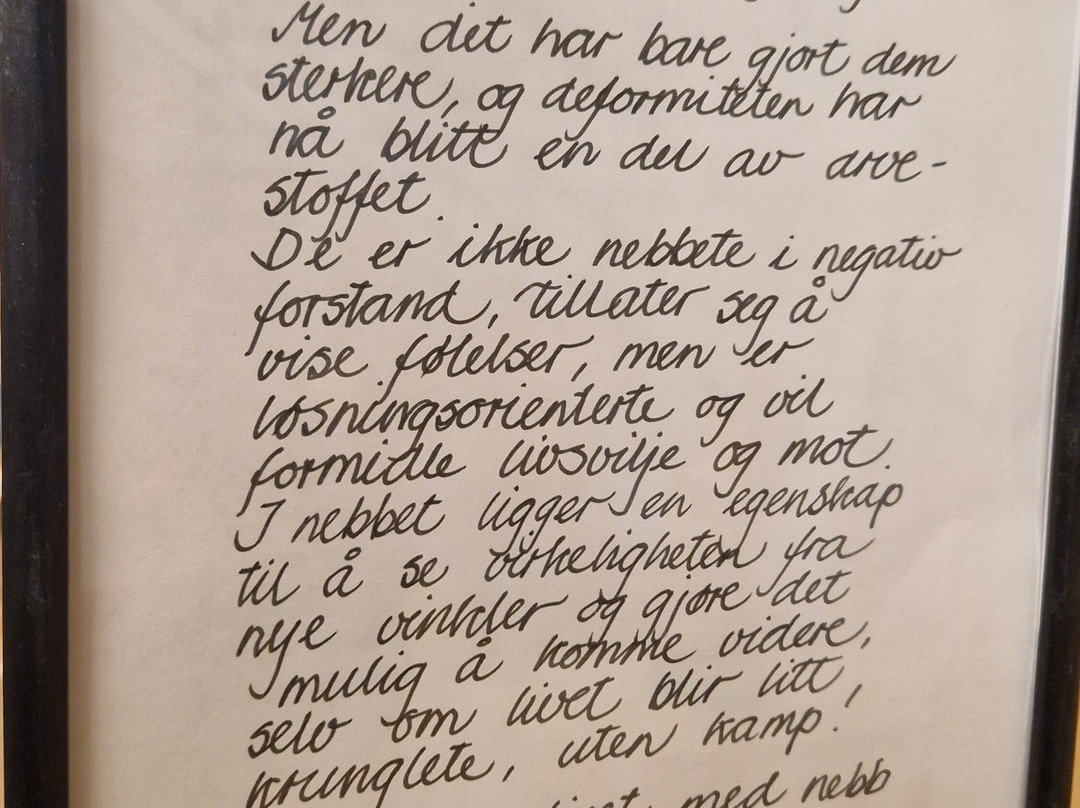 Men det har bare gjort dem
sterkere, og deformiteten har
nå blitt en del av arve-
stoffet.
De er ikke nebbete i negativ
forstand, tillater seg å
vise følelser, men er
løsningsorienterte og vil
formidle livsvilje og mot.
I nebbet ligger en egenskap
til å se virkeligheten fra
nye vinkler og gjøre det
mulig å komme videre,
selv om livet blir litt
krunglete, uten kamp!
med nebb